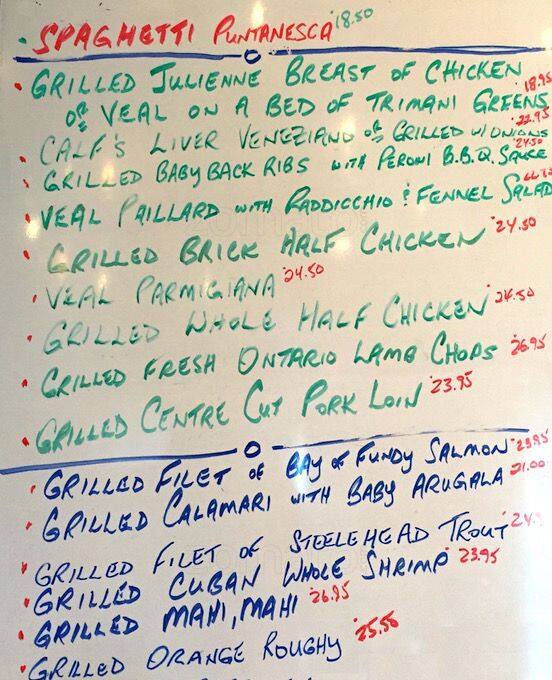 SPAGHETTI PUNTANESCA 18.50
GRILLED JULIENNE BREAST OF CHICKEN
OR VEAL ON A BED OF TRIMANI GREENS 18.95
CALF'S LIVER VENEZIANO OR GRILLED W/ONIONS 22.95
GRILLED BABY BACK RIBS WITH PERONI B.B.Q. SAUCE 24.50
VEAL PAILLARD WITH RADDICCHIO & FENNEL SALAD
GRILLED BRICK HALF CHICKEN 24.50
VEAL PARMIGIANA 24.50
GRILLED WHOLE HALF CHICKEN 24.50
GRILLED FRESH ONTARIO LAMB CHOPS 26.95
GRILLED CENTRE CUT PORK LOIN 23.95
GRILLED FILET OF BAY OF FUNDY SALMON 23.95
GRILLED CALAMARI WITH BABY ARUGALA 21.00
GRILLED FILET OF STEELEHEAD TROUT
GRILLED CUBAN WHOLE SHRIMP 23.95
GRILLED MAHI, MAHI 26.95
GRILLED ORANGE ROUGHY 25.55